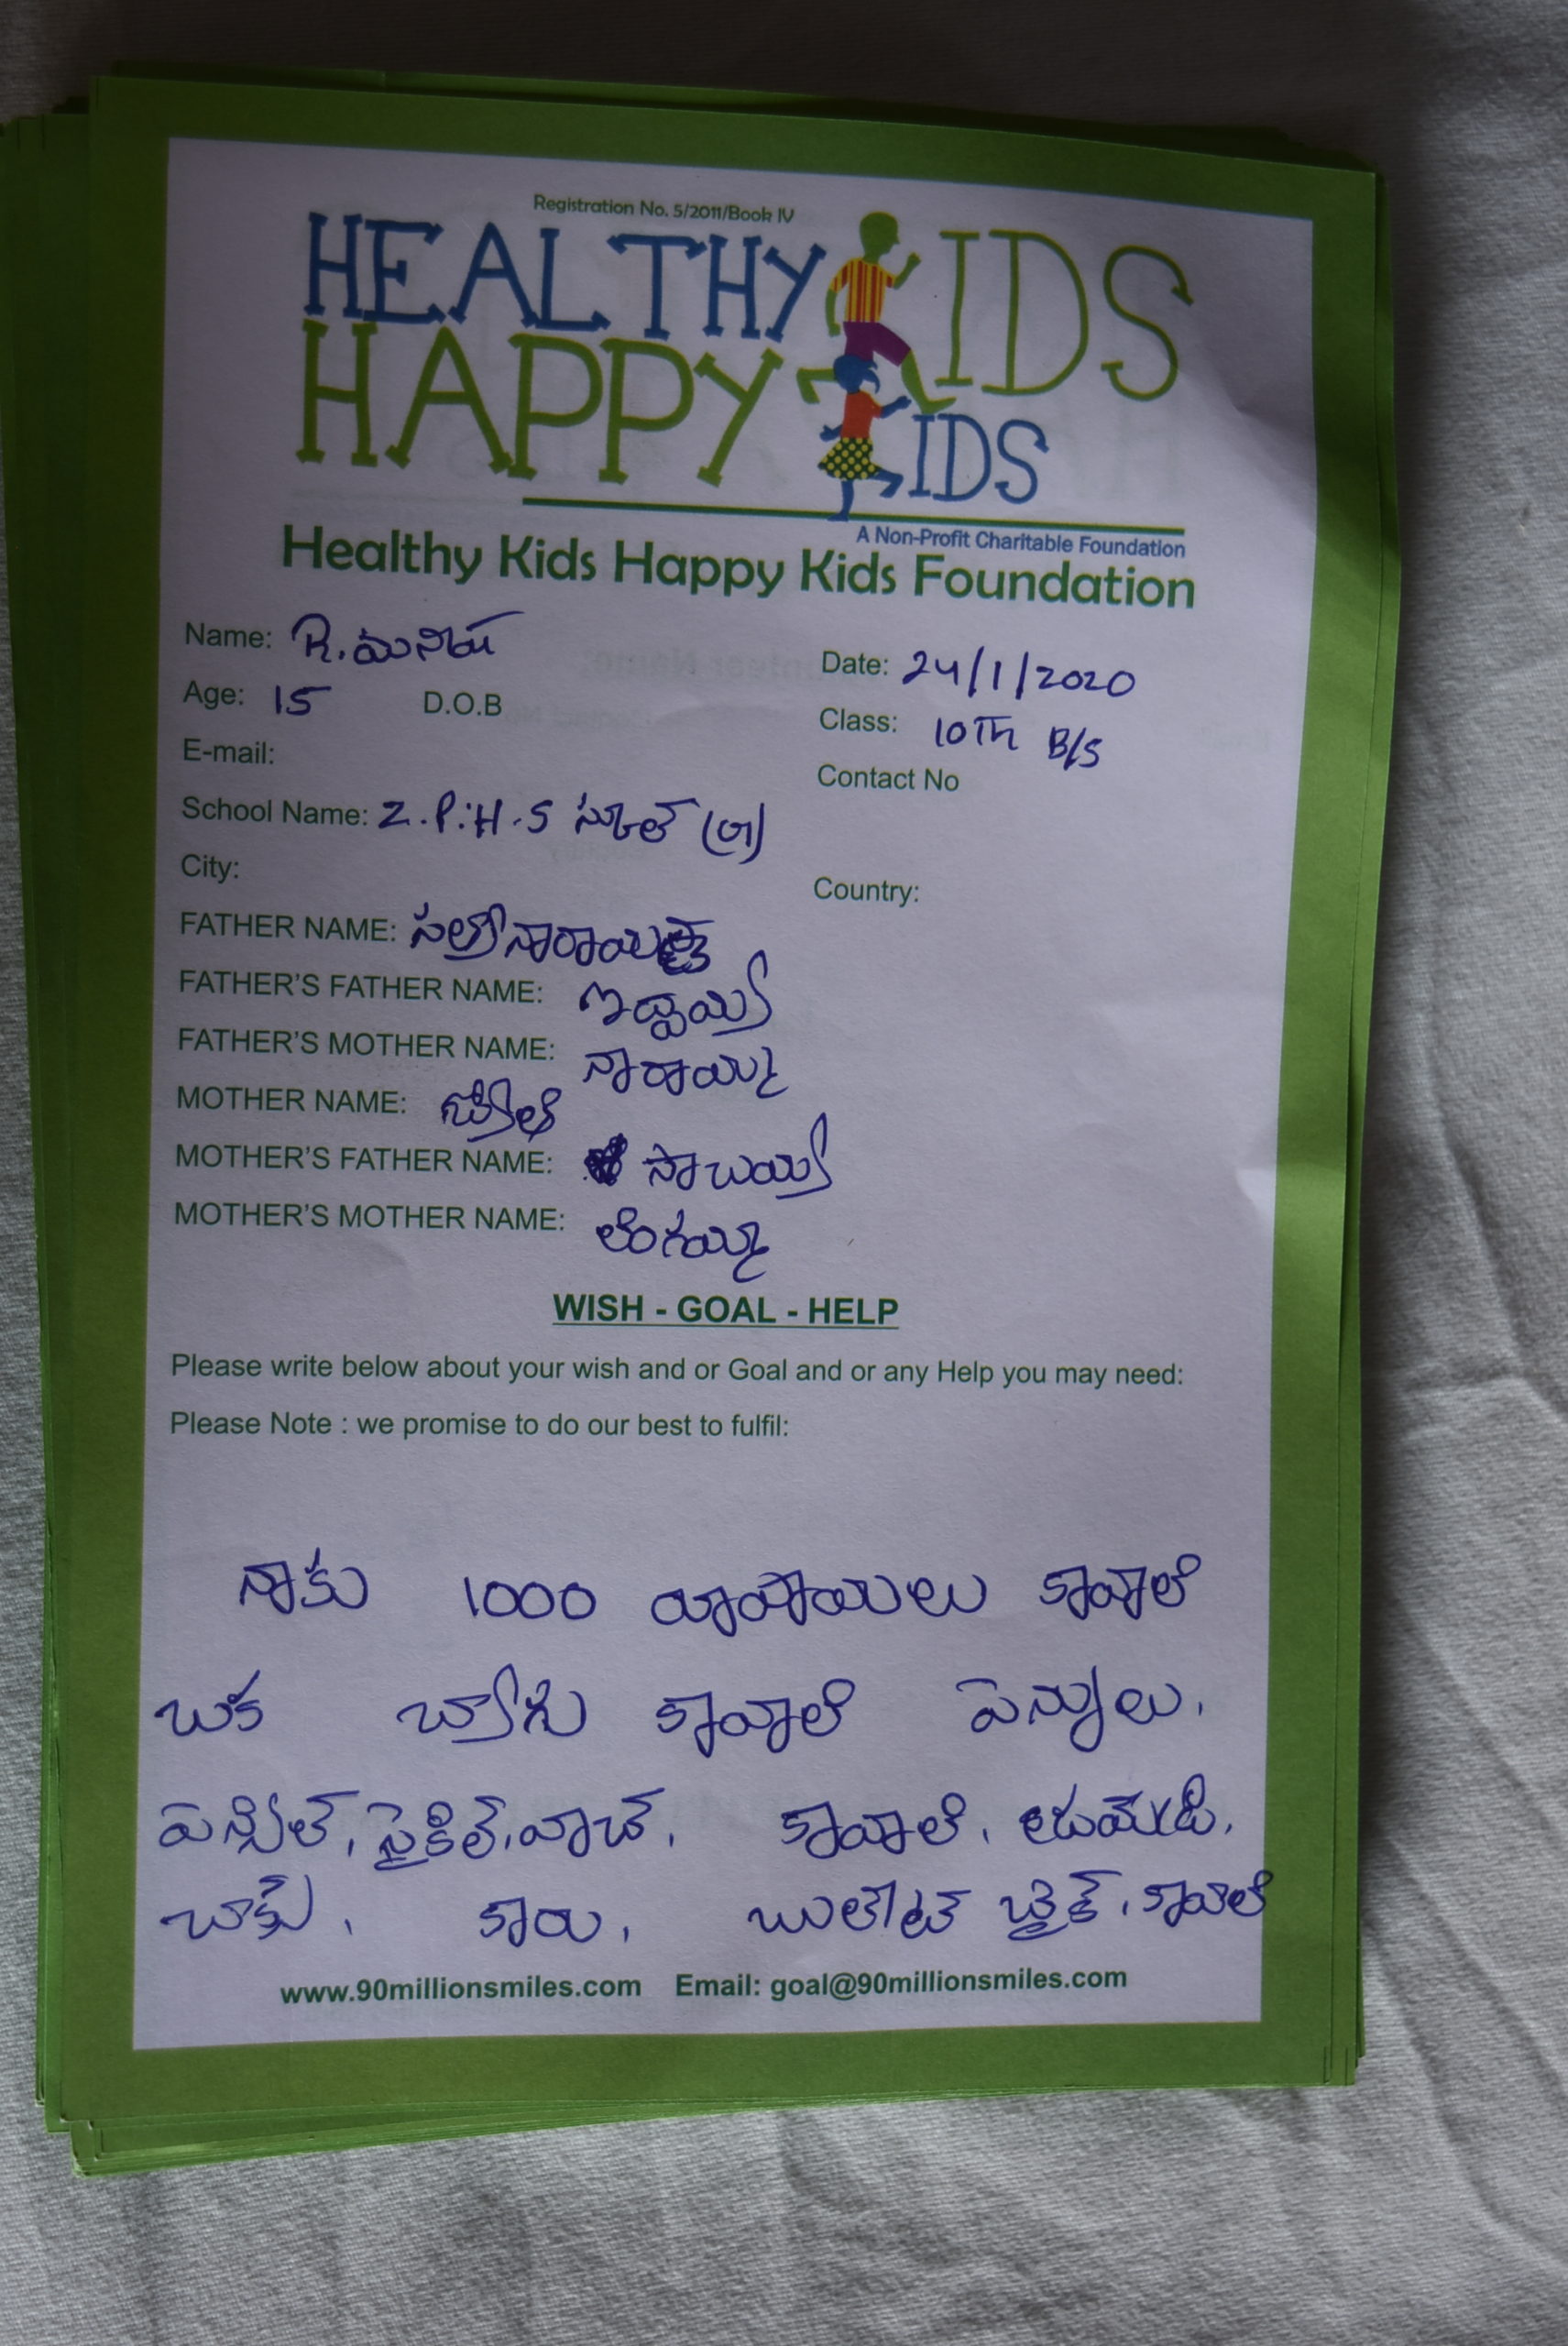 Registration No. 5/2011/Book IV
HEALTHY KIDS
HAPPY KIDS
A Non-Profit Charitable Foundation
Healthy Kids Happy Kids Foundation
Name: R.
Date: 24/1/2020
Age: 15 D.O.B
Class: 10Th B/S
E-mail:
Contact No
School Name: Z.P.H.S స్కూల్
City:
Country:
FATHER NAME:
FATHER'S FATHER NAME:
FATHER'S MOTHER NAME: నారాయమ్మ
MOTHER NAME:
MOTHER'S FATHER NAME: సాబయ్య
MOTHER'S MOTHER NAME: లింగమ్మ
WISH - GOAL - HELP
Please write below about your wish and or Goal and or any Help you may need:
Please Note : we promise to do our best to fulfil:
నాకు 1000 రూపాయలు కావాలి
ఒక బ్యాగు కావాలి పెన్నులు.
పెన్సిల్, సైకిల్, వాచ్, కావాలి,
బాక్స్, కారు, బులెట్ బైక్, కావాలి
www.90millionsmiles.com Email: goal@90millionsmiles.com